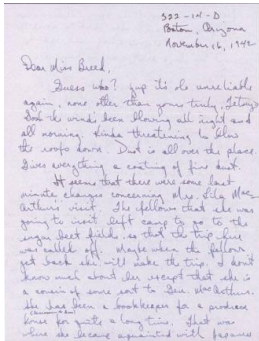 322-14-D
Poston, Arizona
November 16, 1942
Dear Miss Breed,
Guess who? Yup it's ole unreliable
again, none other than yours truly,
Gosh the winds been blowing all night and
all morning. Kinda threatening to blow
the roofs down. Dust is all over the place.
Gives everything a coating of fine dust.
It seems that there were some last
minute changes concerning Mrs. Mac
Arthur's visit. The fellows that she was
going to visit, left camp to go to the
sugar beet fields, so that the trip here
was called off. Maybe when the fellows
get back she will make the trip. I don't
know much about her except that she is
a cousin of some sort to Gen. MacArthur.
She has been a bookkeeper for a produce
house for quite a long time. That was
where she became aquainted with